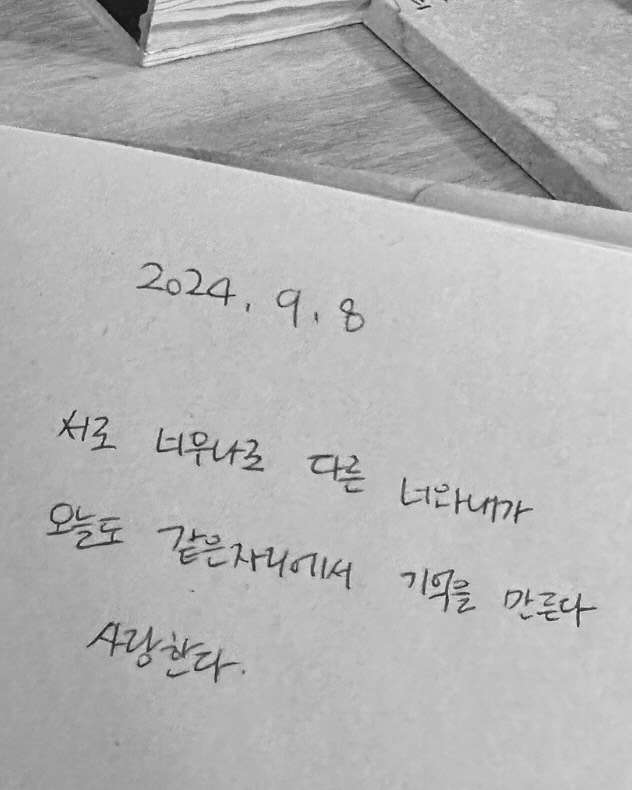 2024. 9. 8
서로 너무나로 다른 너와내가
오늘도 같은자리에서 기억을 만든다
사랑한다.